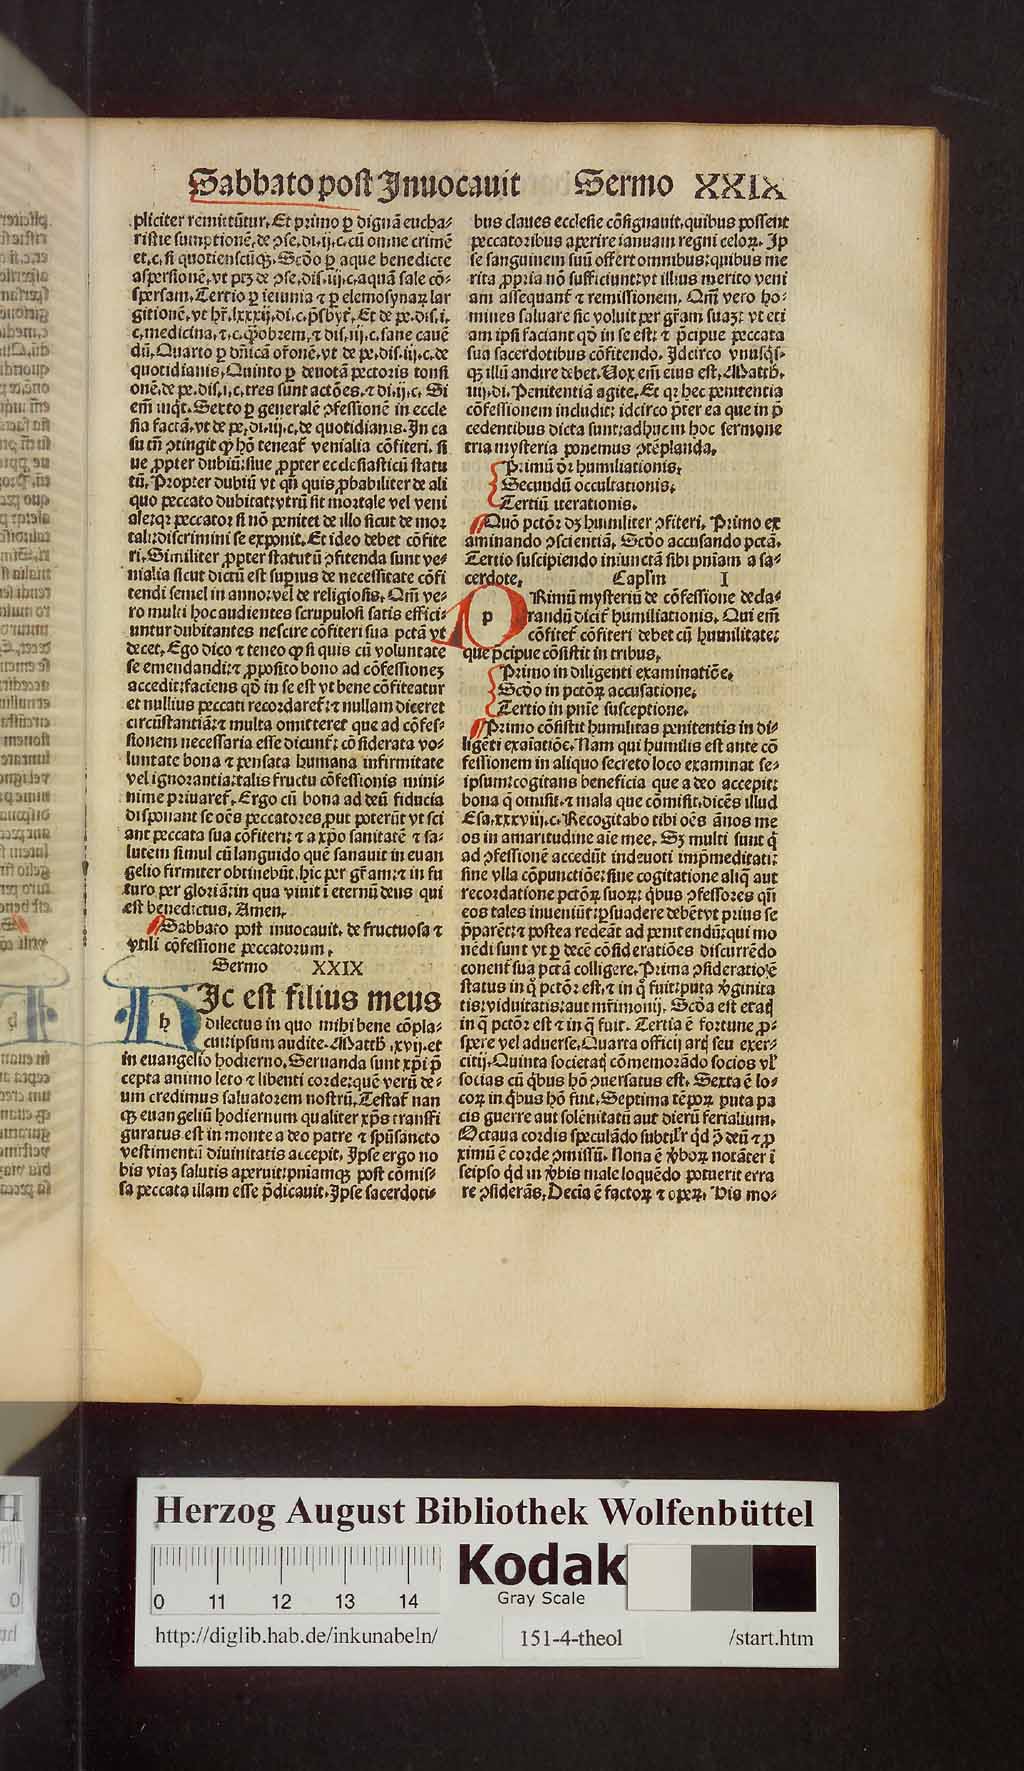 Sabbato post Inuocauit Sermo XXIX
pliciter remittūtur. Et primo ꝑ dignā eucha-
ristie sumptionē, de ↄse. di. ij. c. cū omne crimē
et. c. si quotienscūqꝫ. Scdo ꝑ aque benedicte
aspersionē. vt ptꝫ de ↄse. dis. iij. c. aquā sale cō-
spersam. Tertio ꝑ ieiunia ⁊ ꝑ elemosynaꝝ lar
gitionē, vt hr̄. lxxxij. di. c. p̄sbyt̄. Et de pe. dis. i.
c. medicina, ⁊ c. q̄obrem, ⁊ dis. iij. c. sane cauē
dū. Quarto ꝑ dn̄icā or̄onē. vt de pe. dis. iij. c. de
quotidianis. Quinto ꝑ deuotā pectoris tonsi
onē. de pe. dis. i. c. tres sunt actōes. ⁊ di. ij. c. Si
em̄ inqt̄. Sexto ꝑ generalē ↄfessionē in eccle
sia factā. vt de pe. di. iij. c. de quotidianis. In ca
su tn̄ ↄtingit ꝙ hō teneat̄ venialia cōfiteri. si
ue ꝓpter dubiū: siue ꝓpter ecclesiasticū statu
tū. Propter dubiū vt qn̄ quis ꝓbabiliter de ali
quo peccato dubitat: vtrū sit mortale vel veni
ale: qꝛ peccator si nō penitet de illo sicut de mor
tali: discrimini se exponit. Et ideo debet cōfite
ri. Similiter ꝓpter statutū ↄfitenda sunt ve-
nialia sicut dictū est supius de necessitate cōfi
tendi semel in anno: vel de religiosis. Qm̄ ve-
ro multi hoc audientes scrupulosi satis effici-
untur dubitantes nescire cōfiteri sua pctā vt
decet. Ego dico ⁊ teneo ꝙ si quis cū voluntate
se emendandi: ⁊ ꝓposito bono ad cōfessionez
accedit: faciens qd̄ in se est vt bene cōfiteatur
et nullius peccati recordaret̄: ⁊ nullam diceret
circūstantiā: ⁊ multa omitteret que ad cōfes-
sionem necessaria esse dicunt̄: cōsiderata vo-
luntate bona ⁊ pensata humana infirmitate
vel ignorantia: talis fructu cōfessionis mini-
nime priuaret̄. Ergo cū bona ad deū fiducia
disponant se oēs peccatores, put poterūt vt sci
ant peccata sua cōfiteri: ⁊ a xp̄o sanitatē ⁊ sa-
lutem simul cū languido quē sanauit in euan
gelio firmiter obtinebūt. hic per gr̄am: ⁊ in fu
turo per gloriā: in qua viuit ī eternū deus qui
est benedictus. Amen.
Sabbato post inuocauit. de fructuosa ⁊
vtili cōfessione peccatorum.
Sermo XXIX
h Ic est filius meus
dilectus in quo mihi bene cōpla-
cui: ipsum audite. Matth̄. xvij. et
in euangelio hodierno. Seruanda sunt xp̄i p̄
cepta animo leto ⁊ libenti corde: quē verū de-
um credimus saluatorem nostrū. Testat̄ nan
qꝫ euangeliū hodiernum qualiter xp̄s transfi
guratus est in monte a deo patre ⁊ spūsancto
vestimentū diuinitatis accepit. Ipse ergo no
bis viaꝫ salutis aperuit: pniamqꝫ post cōmis-
sa peccata illam esse p̄dicauit. Ipse sacerdoti-
bus claues ecclesie cōsignauit. quibus possent
peccatoribus aperire ianuam regni celoꝝ. Ip
se sanguinem suū offert omnibus: quibus me
rita ꝓpria nō sufficiunt: vt illius merito veni
am assequant̄ ⁊ remissionem. Qm̄ vero ho-
mines saluare sic voluit per gr̄am suaꝫ: vt eti
am ipsi faciant qd̄ in se est: ⁊ p̄cipue peccata
sua sacerdotibus cōfitendo. Idcirco vnusq̄s-
qꝫ illū audire debet. Uox em̄ eius est. Matth̄.
iiij. di. Penitentiā agite. Et qꝛ hec penitentia
cōfessionem includit: idcirco p̄ter ea que in p̄
cedentibus dicta sunt: adhuc in hoc sermone
tria mysteria ponemus ↄtēplanda.
Primū dr̄ humiliationis.
Secundū occultationis.
Tertiū iterationis.
Quō pctōr dꝫ humiliter ↄfiteri. Primo ex
aminando ↄscientiā. Scdo accusando pctā.
Tertio suscipiendo iniunctā sibi pniam a sa-
cerdote. Caplm̄ I
p Rimū mysteriū de cōfessione decla-
randū dicit̄ humiliationis. Qui em̄
cōfitet̄ cōfiteri debet cū humilitate:
que p̄cipue cōsistit in tribus.
Primo in diligenti examinatiōe.
Scdo in pctōꝝ accusatione.
Tertio in pnīe susceptione.
Primo cōsistit humilitas penitentis in di-
ligēti exaiatiōe. Nam qui humilis est ante cō
fessionem in aliquo secreto loco examinat se-
ipsum: cogitans beneficia que a deo accepit:
bona q̄ omisit. ⁊ mala que cōmisit. dicēs illud
Esa. xxxviij. c. Recogitabo tibi oēs ānos me
os in amaritudine aie mee. Sꝫ multi sunt q̄
ad ↄfessionē accedūt indeuoti imp̄meditati:
sine vlla cōpunctiōe: siue cogitatione aliq̄ aut
recordatione pctōꝝ suoꝝ: q̄bus ↄfessores qn̄
eos tales inueniūt: ꝑsuadere debēt vt prius se
p̄parēt: ⁊ postea redeāt ad penitendū: qui mo
nēdi sunt vt ꝑ decē cōsideratiōes discurrēdo
conent̄ sua pctā colligere. Prima ↄsideratio ē
status in q̄ pctōr est. ⁊ in q̄ fuit: puta v̄ginita
tis: viduitatis: aut mr̄imonij. Scda est etatꝭ
in q̄ pctōr est ⁊ in q̄ fuit. Tertia ē fortune ꝓ-
spere vel aduerse. Quarta officij artꝭ seu exer-
citij. Quinta societatꝭ cōmemorādo socios vl̓
socias cū q̄bus hō ↄuersatus est. Sexta ē lo-
coꝝ in q̄bus hō fuit. Septima tēpoꝝ puta pa
cis guerre aut solēnitatū aut dierū ferialium.
Octaua cordis speculādo subtilr̄ qd̄ ↄ̄ deū ⁊ ꝓ
ximū ē corde ↄmissū. Nona ē v̄boꝝ notāter ī
seipso qd̄ in v̄bis male loquēdo potuerit erra
re ↄsiderās. Decīa ē factoꝝ ⁊ opeꝝ. His mo-
Herzog August Bibliothek Wolfenbüttel
0 11 12 13 14
Kodak
Gray Scale
http://diglib.hab.de/inkunabeln/ 151-4-theol /start.htm